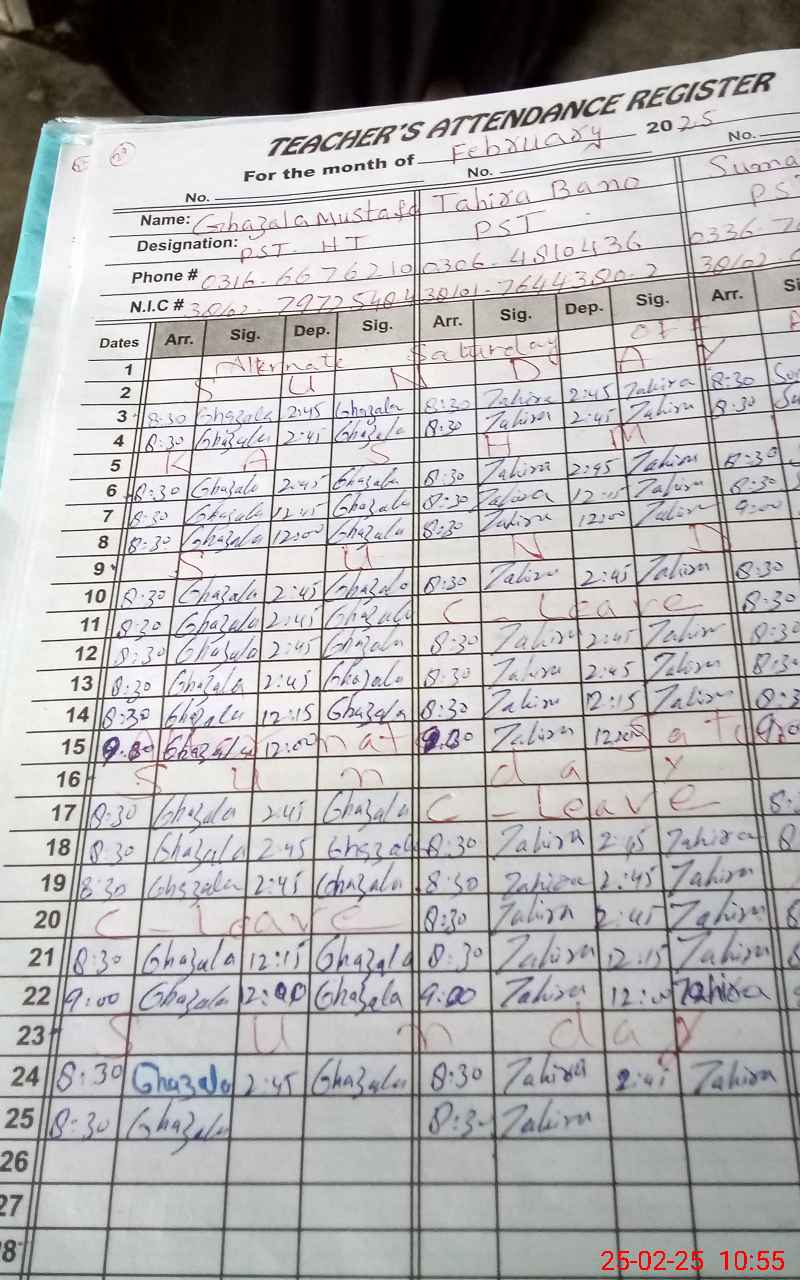 TEACHER'S ATTENDANCE REGISTER
For the month of February 2025
No. No. No.
Name: Ghazala Mustafa Tahira Bano Suma
Designation: PST. HT PST PS
Phone # 0316-6676210 0306-4810436 0336-7
N.I.C # 38102-7972 38101-7644380-2 38102-
Dates Arr. Sig. Dep. Sig. Arr. Sig. Dep. Sig. Arr. Si
1 Alternate Saturday off
2 S U N D A Y
3 8:30 Ghazala 2:45 Ghazala 8:30 Tahira 2:45 Tahira 8:30
4 8:30 Ghazala 2:45 Ghazala 8:30 Tahira 2:45 Tahira 8:30
5 K A S H M
6 8:30 Ghazala 2:45 Ghazala 8:30 Tahira 2:45 Tahira 8:30
7 8:30 Ghazala 12:15 Ghazala 8:30 Tahira 12:15 Tahira 8:30
8 8:30 Ghazala 12:00 Ghazala 8:30 Tahira 12:00 Tahira 9:00
9 S U N D
10 8:30 Ghazala 2:45 Ghazala 8:30 Tahira 2:45 Tahira 8:30
11 8:30 Ghazala 2:45 Ghazala C-Leave 8:30
12 8:30 Ghazala 2:45 Ghazala 8:30 Tahira 2:45 Tahira 8:30
13 8:30 Ghazala 2:45 Ghazala 8:30 Tahira 2:45 Tahira 8:30
14 8:30 Ghazala 12:15 Ghazala 8:30 Tahira 12:15 Tahira 8:3
15 Ghazala 12:00 Tahira 12:00
16 S u n d a y
17 8:30 Ghazala 2:45 Ghazala C-Leave 8:
18 8:30 Ghazala 2:45 Ghazala 8:30 Tahira 2:45 Tahira 8
19 8:30 Ghazala 2:45 Ghazala 8:30 Tahira 2:45 Tahira
20 C-Leave 8:30 Tahira 2:45 Tahira 8
21 8:30 Ghazala 12:15 Ghazala 8:30 Tahira 12:15 Tahira 8
22 9:00 Ghazala 12:00 Ghazala 9:00 Tahira 12:00 Tahira
23 S u n d a y
24 8:30 Ghazala 2:45 Ghazala 8:30 Tahira 2:45 Tahira
25 8:30 Ghazala 8:30 Tahira
26
27
28
25-02-25 10:55